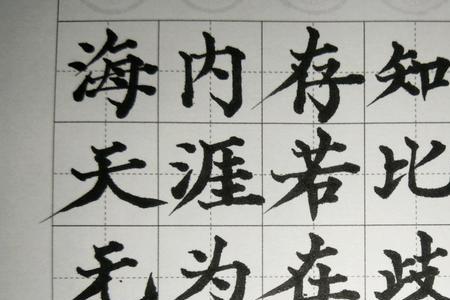 海内存知
天涯若比
无为在歧